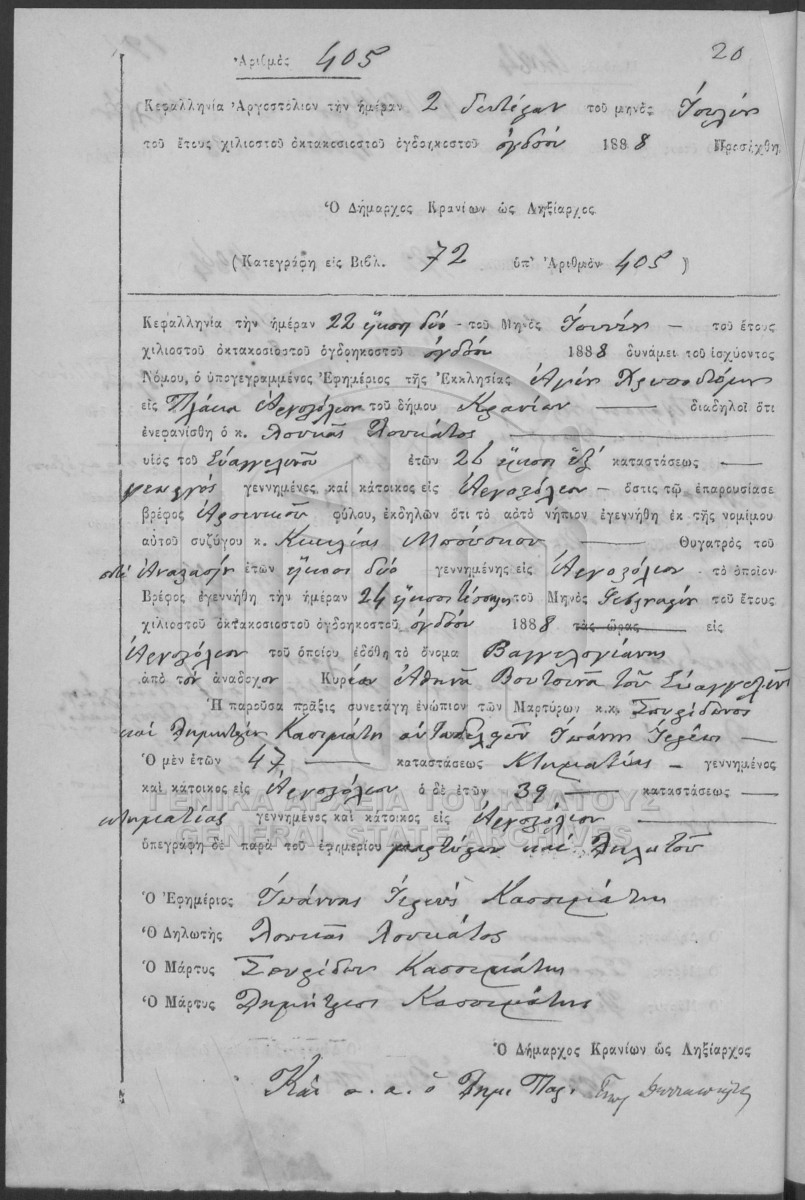 Ἀριθμὸς 405
20
Κεφαλληνία Ἀργοστόλιον τὴν ἡμέραν 2 δευτέραν τοῦ μηνὸς Ἰουλίου
τοῦ ἔτους χιλιοστοῦ ὀκτακοσιοστοῦ ὀγδοηκοστοῦ ὀγδόου 1888 Προσήχθη
Ὁ Δήμαρχος Κρανίων ὡς Ληξίαρχος
(Κατεγράφη εἰς Βιβλ. 72 ὑπ' Ἀριθμὸν 405)
Κεφαλληνία τὴν ἡμέραν 22 εἴκοσι δύο - τοῦ Μηνὸς Ἰουνίου — τοῦ ἔτους
χιλιοστοῦ ὀκτακοσιοστοῦ ὀγδοηκοστοῦ ὀγδόου 1888 δυνάμει τοῦ ἰσχύοντος
Νόμου, ὁ ὑπογεγραμμένος Ἐφημέριος τῆς Ἐκκλησίας Ἁγίου Χρυσοστόμου
εἰς Πλάκα Ἀργοστόλιον τοῦ δήμου Κρανίων — διαδηλοῖ ὅτι
ἐνεφανίσθη ὁ κ. Λουκᾶς Λουκάτος
υἱὸς τοῦ Εὐαγγελινοῦ ἐτῶν 26 εἴκοσι ἕξ καταστάσεως —
γεωργός γεννημένος καὶ κάτοικος εἰς Ἀργοστόλιον - ὅστις τῷ ἐπαρουσίασε
βρέφος Ἀρσενικοῦ φύλου, ἐκδηλῶν ὅτι τὸ αὐτὸ νήπιον ἐγεννήθη ἐκ τῆς νομίμου
αὐτοῦ συζύγου κ. Κικιλίας — Θυγατρὸς τοῦ
ποτὲ Ἀναστάση ἐτῶν εἴκοσι δύο γεννημένης εἰς Ἀργοστόλιον - τὸ ὁποῖον
Βρέφος ἐγεννήθη τὴν ἡμέραν 24 εἴκοσι τέσσαρες τοῦ Μηνὸς Φεβρουαρίου τοῦ ἔτους
χιλιοστοῦ ὀκτακοσιοστοῦ ὀγδοηκοστοῦ ὀγδόου 1888 τὰς ὥρας εἰς
Ἀργοστόλιον τοῦ ὁποίου ἐδόθη τὸ ὄνομα Βαγγελογιάννης
ἀπὸ τὸν ἀνάδοχον Κυρίαν Ἀθηνᾶ Βουτσινᾶ τοῦ Εὐαγγελινοῦ
Ἡ παροῦσα πρᾶξις συνετάγη ἐνώπιον τῶν Μαρτύρων κ.κ. Σπυρίδωνος
καὶ Δημητρίου Κασιμάτη αὐταδέλφων Ἰωάννου Ἱερέως —
Ὁ μὲν ἐτῶν 47 — καταστάσεως Κτηματίας - γεννημένος
καὶ κάτοικος εἰς Ἀργοστόλιον ὁ δὲ ἐτῶν 39 — καταστάσεως —
κτηματίας γεννημένος καὶ κάτοικος εἰς Ἀργοστόλιον —
ὑπεγράφη δὲ παρὰ τοῦ ἐφημερίου μαρτύρων καὶ δηλωτοῦ
ΓΕΝΙΚΑ ΑΡΧΕΙΑ ΤΟΥ ΚΡΑΤΟΥΣ
GENERAL STATE ARCHIVES
Ὁ Ἐφημέριος Ἰωάννης Ἱερεύς Κασσιμάτης
Ὁ Δηλωτής Λουκᾶς Λουκάτος
Ὁ Μάρτυς Σπυρίδων Κασσιμάτης
Ὁ Μάρτυς Δημήτριος Κασσιμάτης
Ὁ Δήμαρχος Κρανίων ὡς Ληξίαρχος
Καὶ α. α. ὁ Δημ. Παρ.